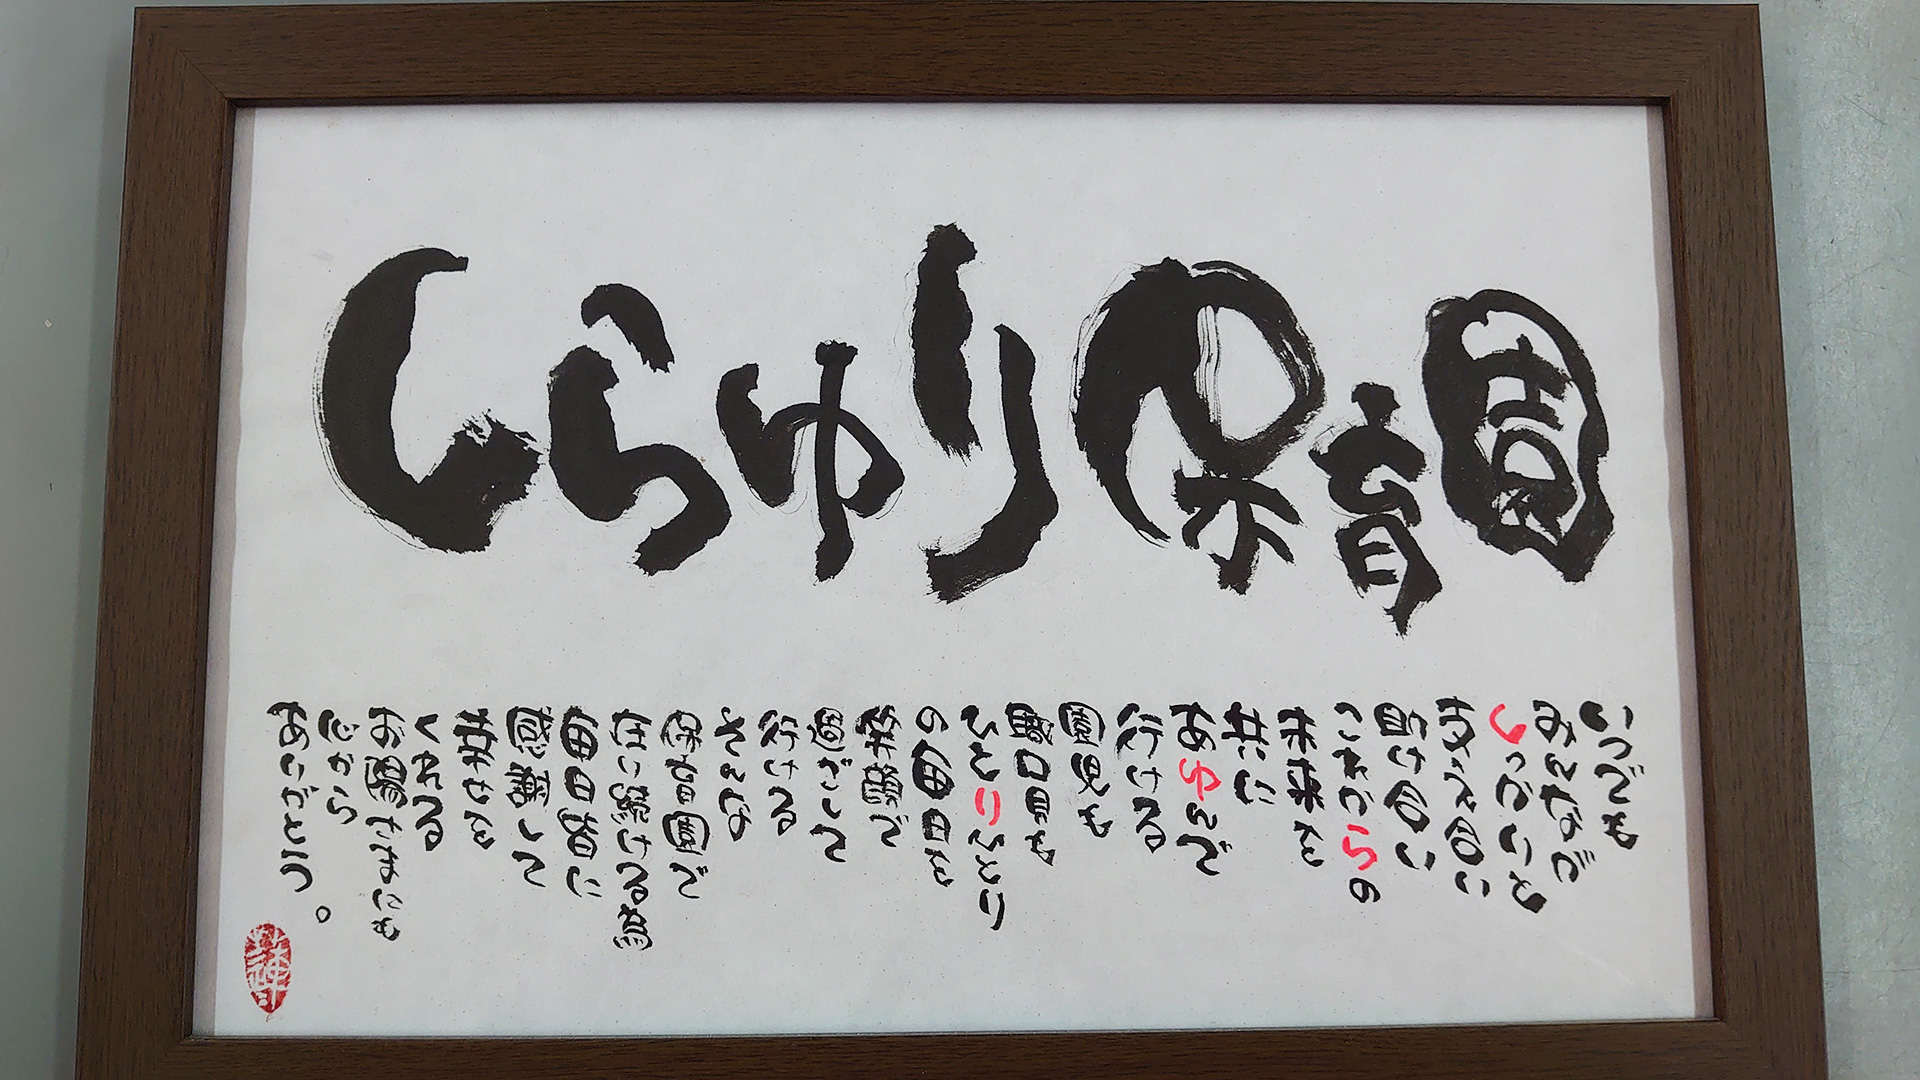 しらゆり保育園
いつでも
みんなが
しっかりと
支え合い
助け合い
これからの
未来を
共に
あゆんで
行ける
園児も
職員も
ひとりひとり
の毎日を
笑顔で
過ごして
行ける
そんな
保育園で
在り続ける
毎日皆に
感謝して
くれる
だから
ありがとう。